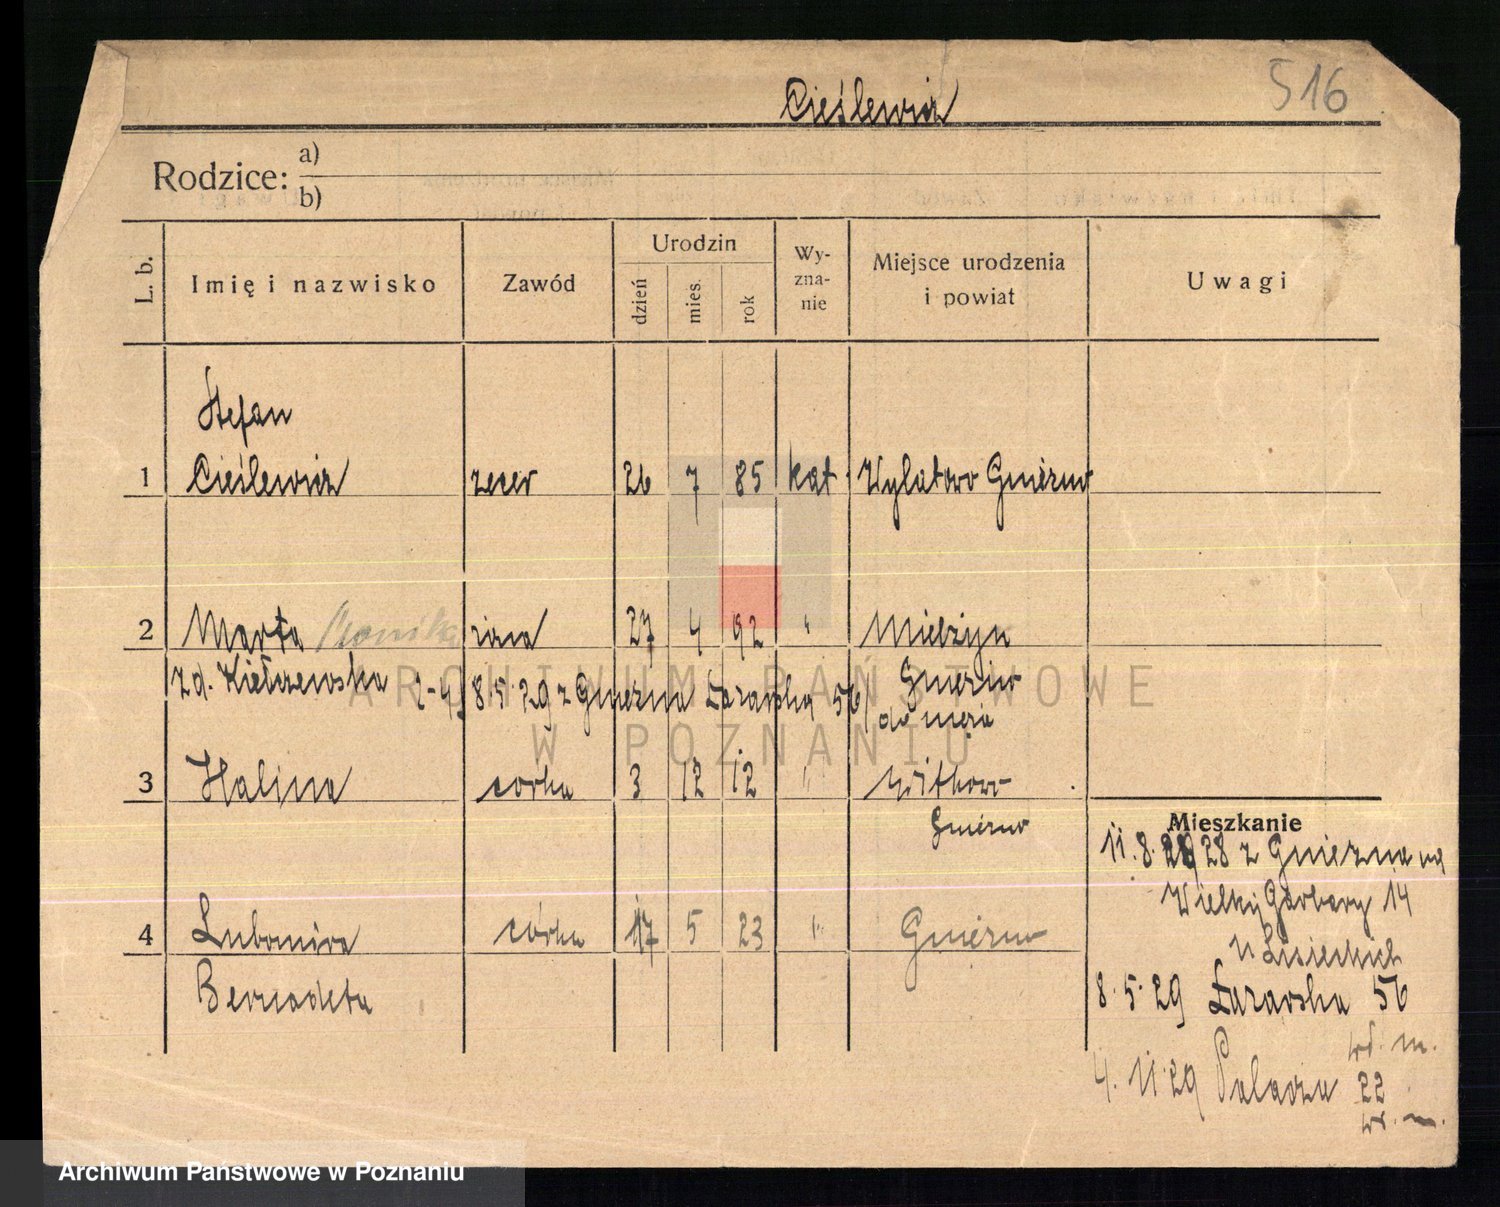 516
Cieślewicz
Rodzice: a)
b)
L. b. Imię i nazwisko Zawód Urodzin dzień mies. rok Wy-zna-nie Miejsce urodzenia i powiat Uwagi
Stefan
1 Cieślewicz zecer 26 7 85 kat. Wylatowo Gniezno
2 Marta Monika żona 27 4 92 " Mielżyn
zd. Kiełczewska Gniezno
2-4) 8.5.29 z Gniezna Łazarska 56 do męża
3 Halina córka 3 12 12 " Witkowo
Gniezno
Mieszkanie
11.8.28 z Gniezna na
Wielkie Garbary 14
u Lisieckich
4 Lubomira córka 17 5 23 " Gniezno
Bernadeta
8.5.29 Łazarska 56
wł. m.
4.11.29 Palacza 22
wł. m.
ARCHIWUM PAŃSTWOWE
W POZNANIU
Archiwum Państwowe w Poznaniu